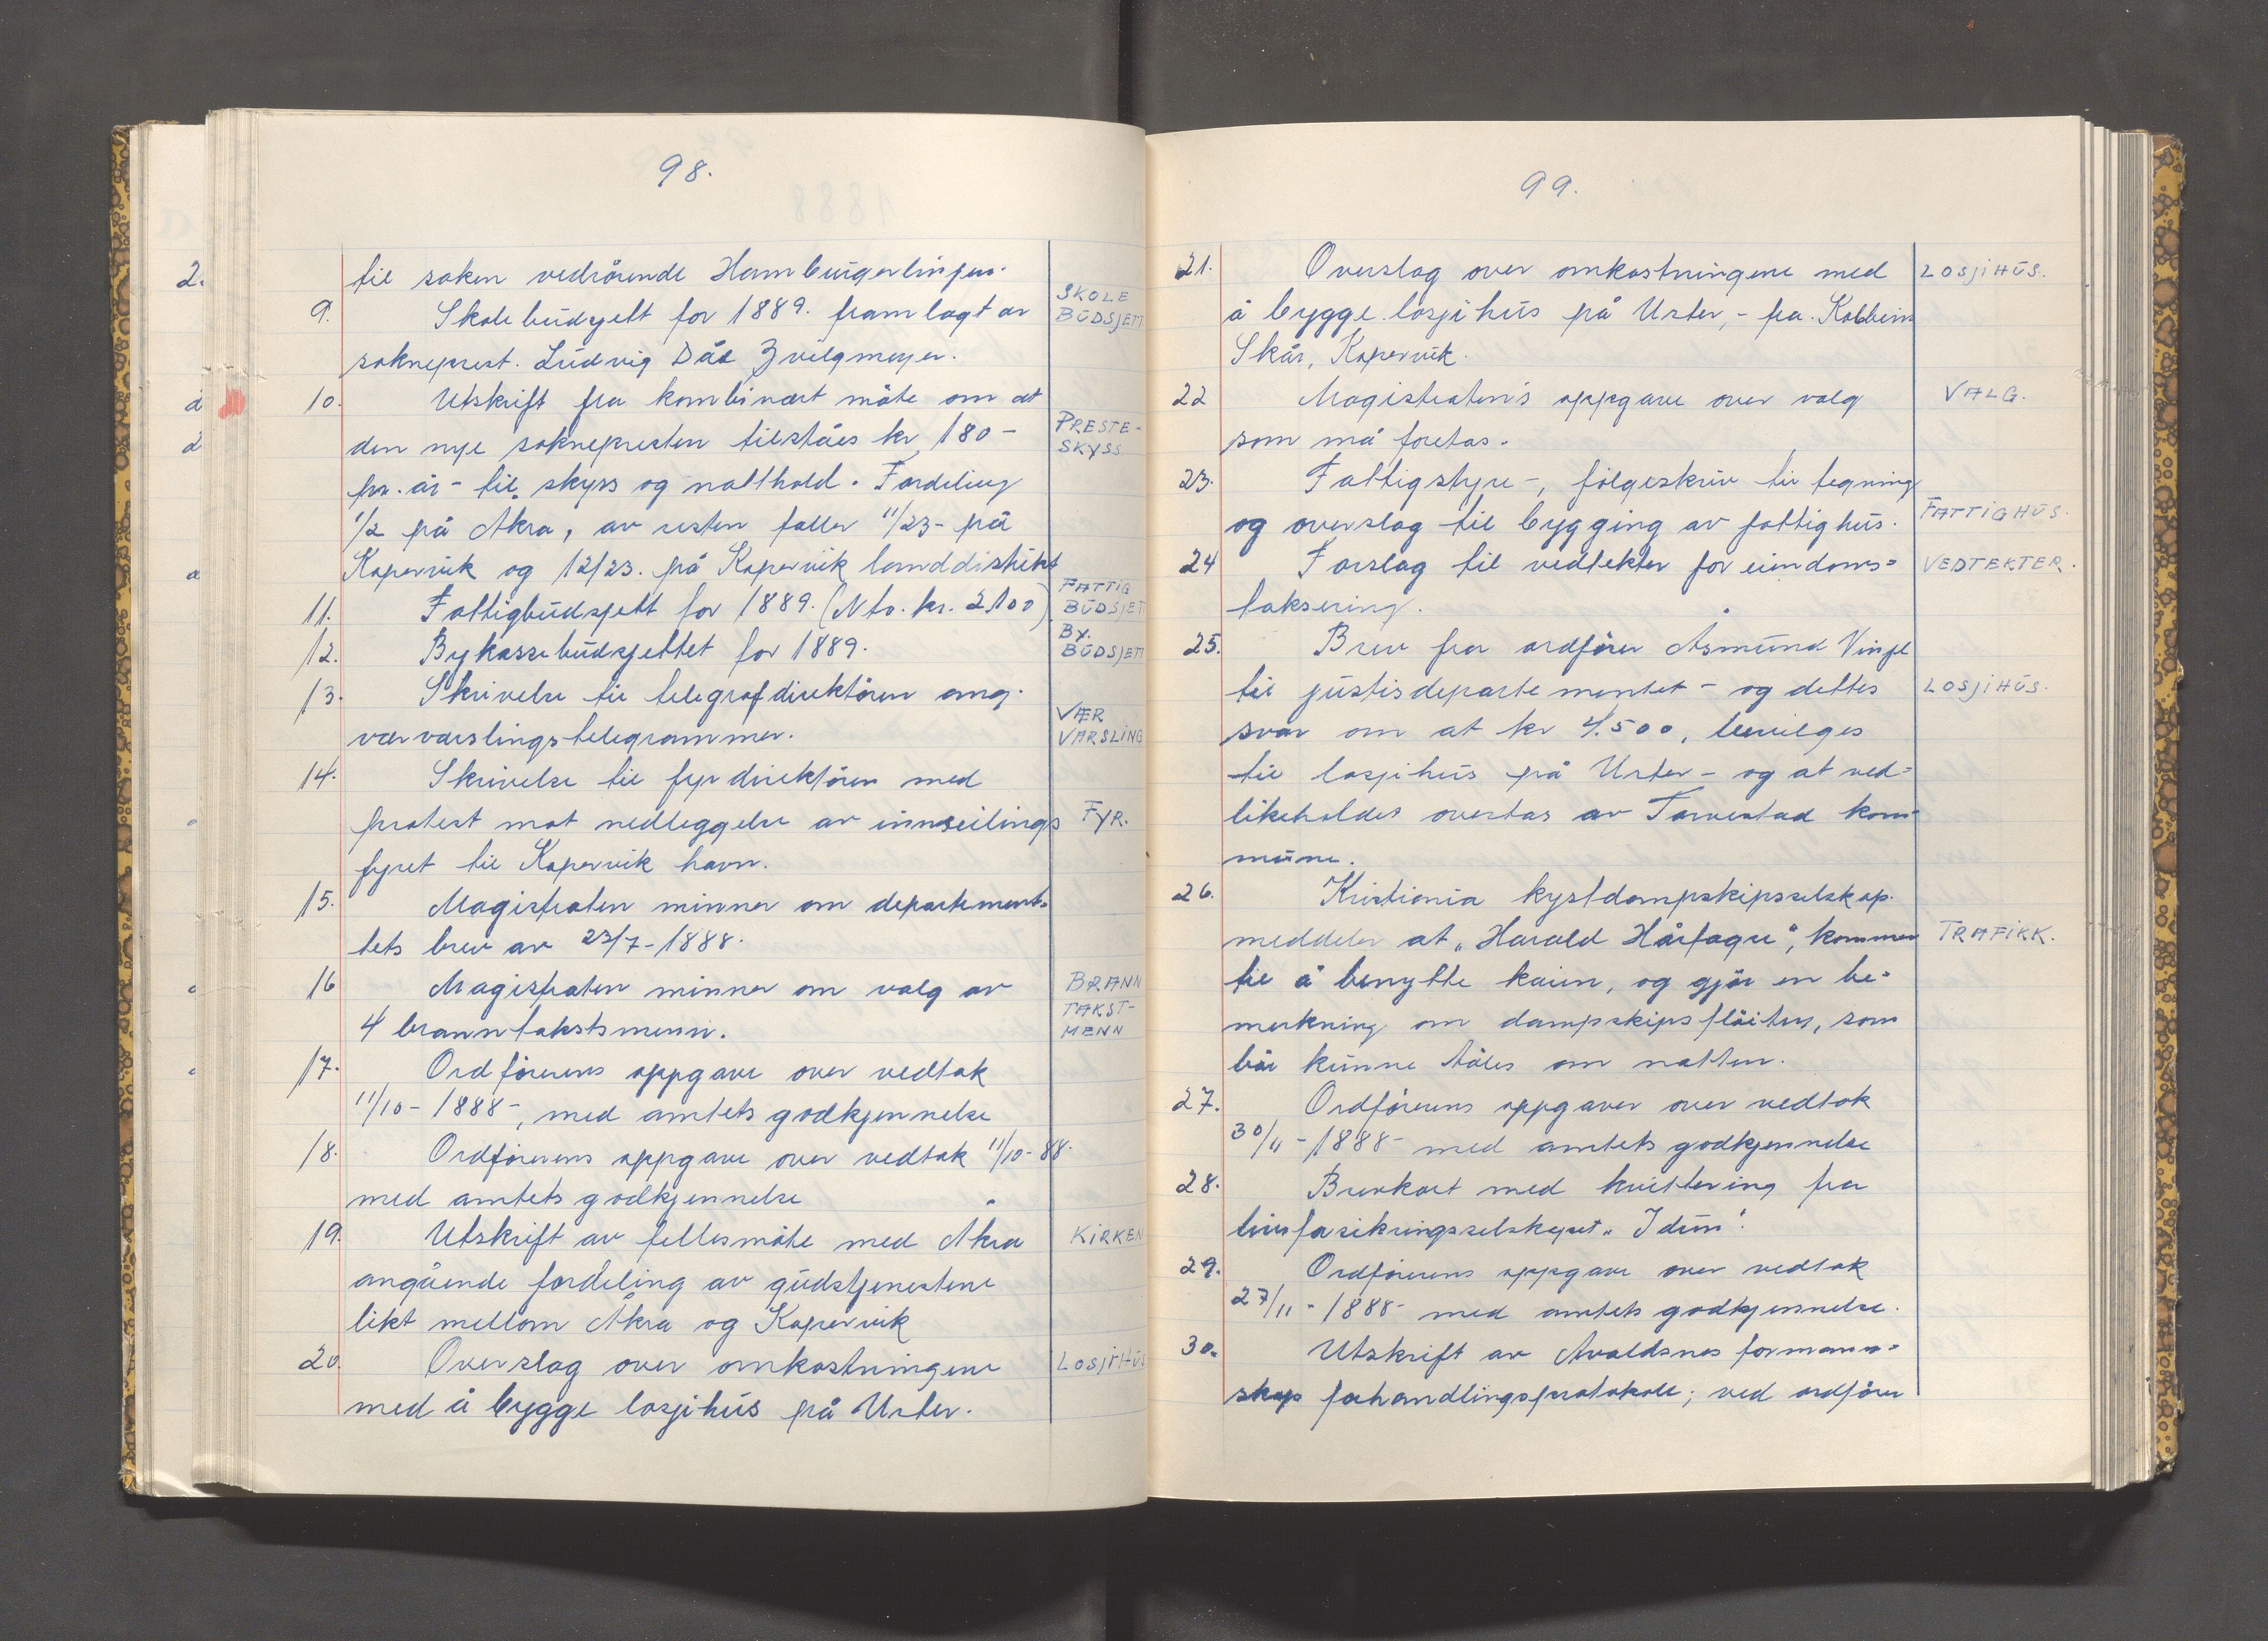 98.
til saken vedrörende Hamburgerlinjen.
9. Skolebudsjett for 1889. framlagt av SKOLE BUDSJETT
sokneprest. Ludvig Dåe Zwilgmeyer.
10. Utskrift fra kombinert möte om at
den nye soknepresten tilståes kr 180- PRESTE-SKYSS
pr. år - til skyss og natthold. Fordeling
1/2 på Akra, av resten faller 11/23- på
Kopervik og 12/23. på Kopervik landdistrikt
11. Fattigbudsjett for 1889. (Nto. kr. 2100) FATTIG BUDSJET
12. Bykassebudsjettet for 1889. BY. BUDSJETT
13. Skrivelse til telegrafdirektören ang.
værvarslingstelegrammer. VÆR VARSLING
14. Skrivelse til fyrdirektören med
protest mot nedleggelse av innseilings FYR.
fyret til Kopervik havn.
15. Magistraten minner om departement-
tets brev av 23/7-1888.
16 Magistraten minner om valg av BRANN
4 branntakstsmenn. TAKST-MENN
17. Ordförerens oppgave over vedtak
11/10-1888-, med amtets godkjennelse
18. Ordförerens oppgave over vedtak 11/10-88.
med amtets godkjennelse
19. Utskrift av fellesmöte med Åkra KIRKEN
angående fordeling av gudstjenestene
likt mellom Åkra og Kopervik
20. Overslag over omkostningene LOSJIHUS
med å bygge losjihus på Urter.
99.
21. Overslag over omkostningene med LOSJIHUS.
å bygge losjihus på Urter, - fra. Kolbein
Skår, Kopervik.
22 Magistraten's oppgave over valg VALG.
som må foretas.
23. Fattigstyre-, fölgeskriv til tegning
og overslag til bygging av fattighus. FATTIGHUS.
24 Forslag til vedtekter for eiendoms= VEDTEKTER.
taksering.
25. Brev fra ordförer Åsmund Vinje
til justisdepartementet - og dettes LOSJIHUS.
svar om at kr 4.500, bevilges
til losjihus på Urter - og at ved=
likeholdet overtas av Torvestad kom-
mune.
26. Kristiania kystdampskipsselskap.
meddeler at „Harald Hårfagre", kommer TRAFIKK.
til å benytte kaien, og gjör en be=
merkning om dampskipsflöiten, som
bör kunne tåles om natten.
27. Ordförerens oppgaver over vedtak
30/11-1888- med amtets godkjennelse
28. Brevkort med kvittering fra
livsforsikringsselskapet „Idun".
29. Ordförerens oppgave over vedtak
27/11-1888- med amtets godkjennelse.
30. Utskrift av Avaldsnes formann=
skaps forhandlingsprotokoll; ved ordförer